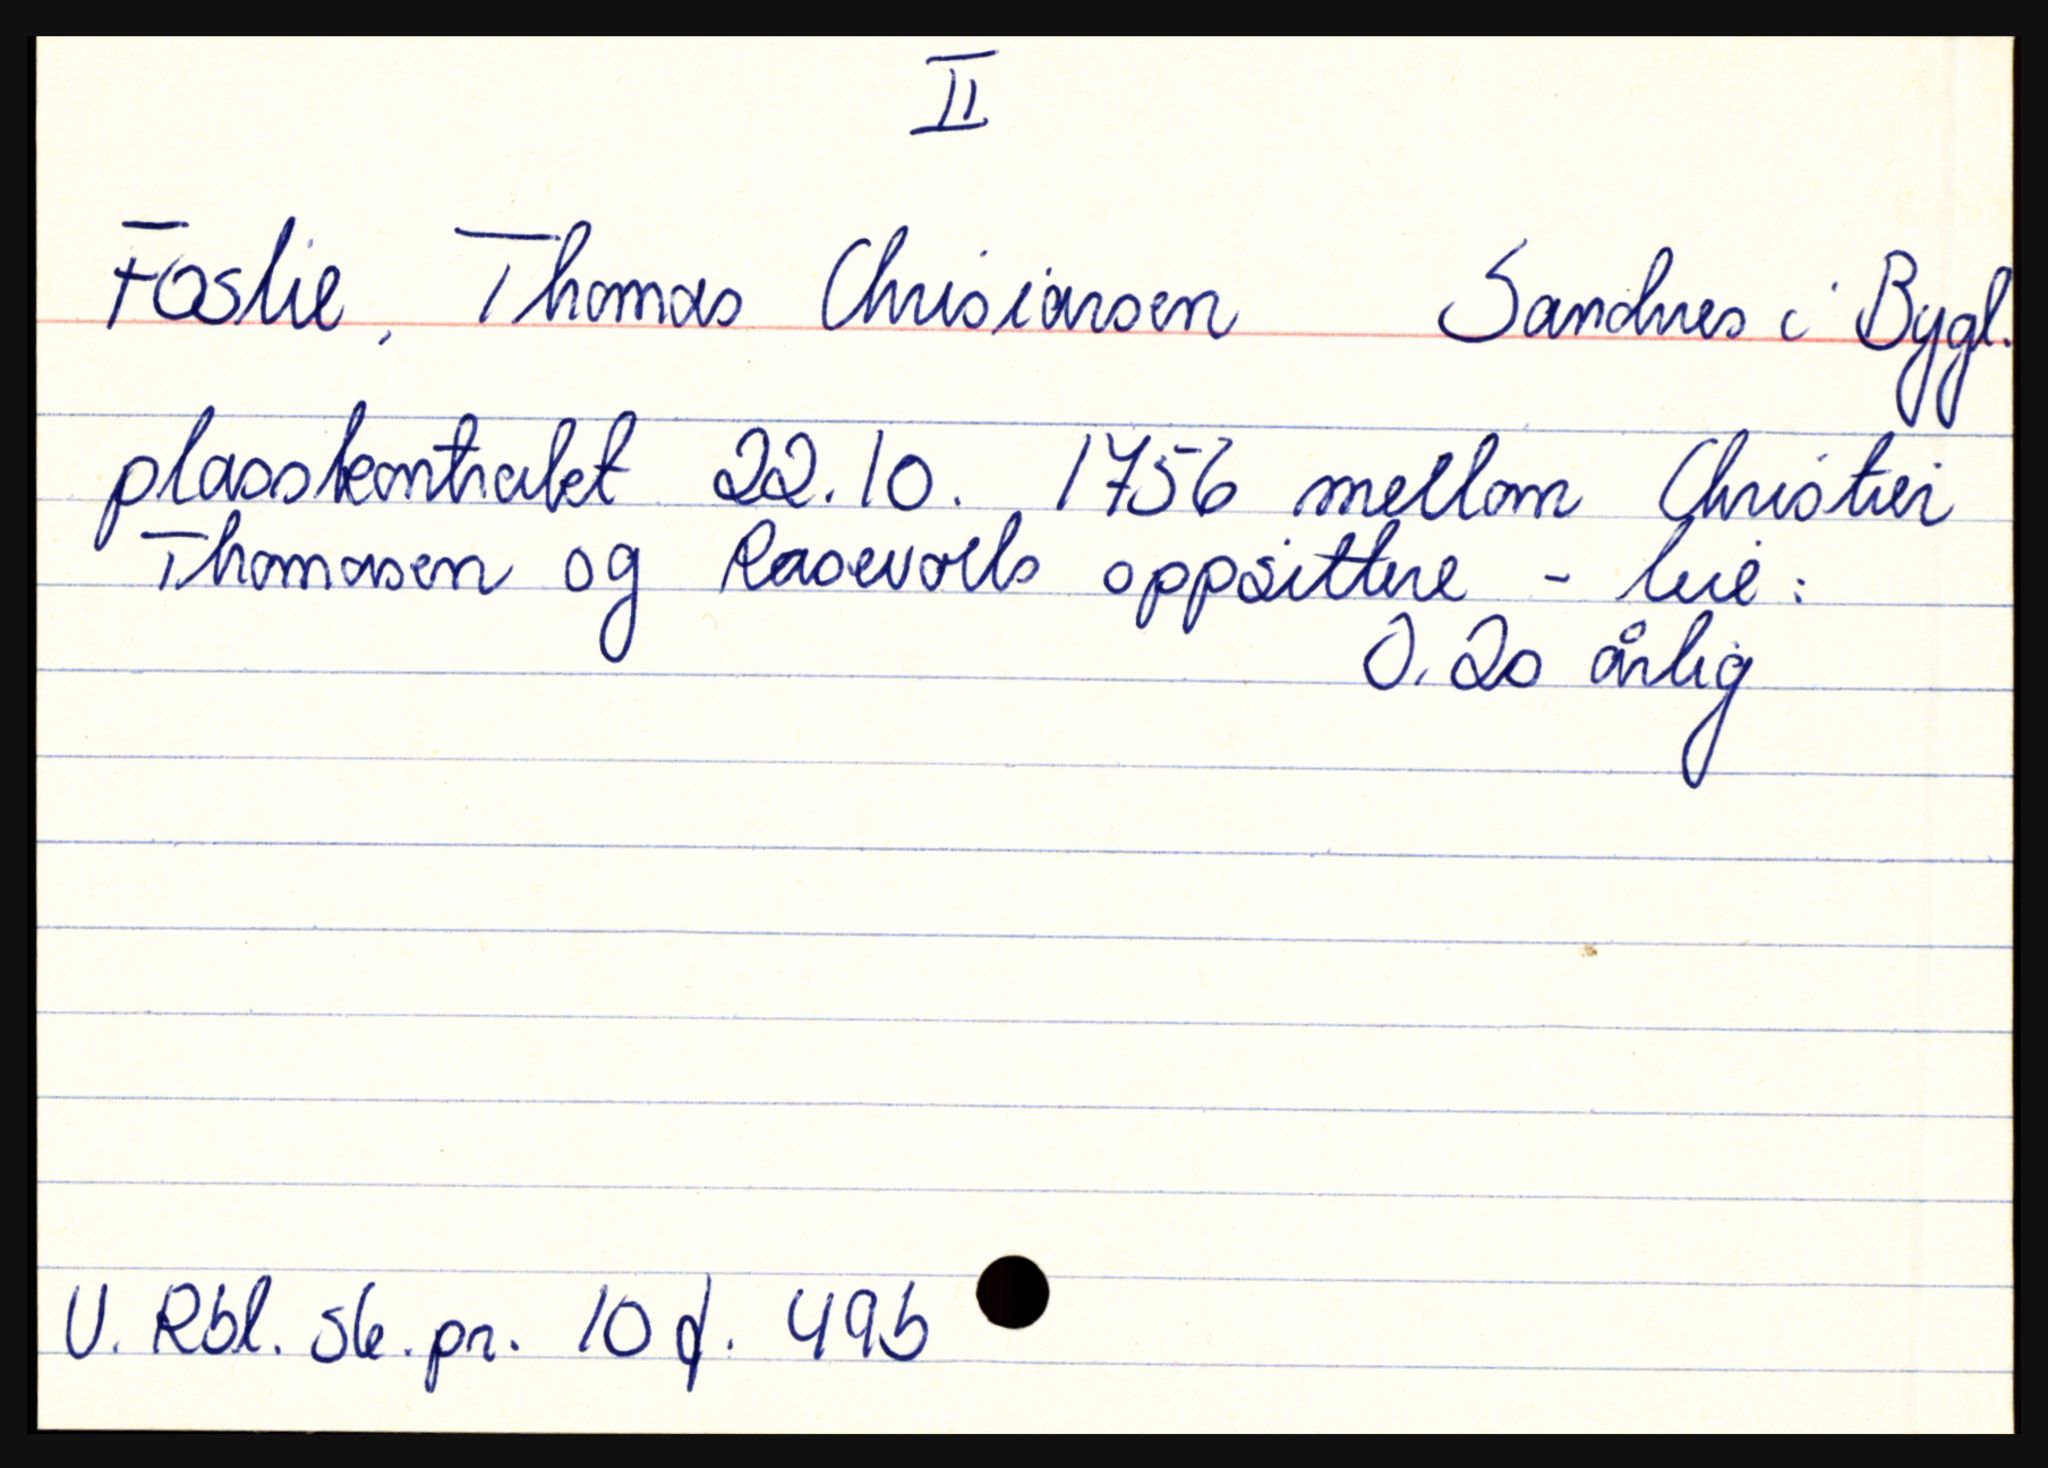 II
Foslie, Thomas Chrisiansen Sandnes i Bygl.
plasskontrakt 22.10. 1756 mellom Christen
Thomasen og Rasevolls oppsittere - leie:
0.20 årlig
V. Rbl. sk. pr. 10 f. 49b